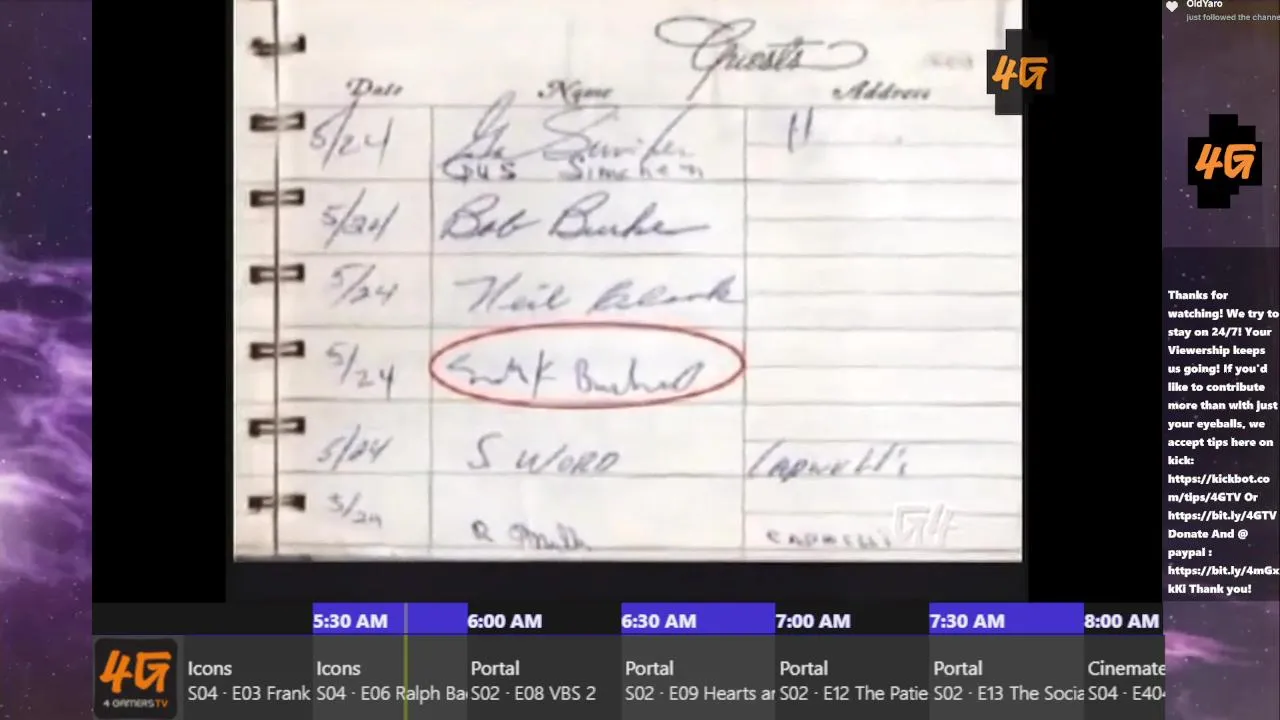 OldYaro
just followed the channe
Guests
4G
Date Name Address
5/24 "
Gus Simchen
5/24 Bob
5/24 Neil
5/24
5/24 S WORD Capwell's
5/24 R
G4
4G
Thanks for
watching! We try to
stay on 24/7! Your
Viewership keeps
us going! If you'd
like to contribute
more than with just
your eyeballs, we
accept tips here on
kick:
https://kickbot.co
m/tips/4GTV Or
https://bit.ly/4GTV
Donate And @
paypal :
https://bit.ly/4mGx
kKl Thank you!
5:30 AM 6:00 AM 6:30 AM 7:00 AM 7:30 AM 8:00 AM
4G
4 GAMERSTV
Icons Icons Portal Portal Portal Portal Cinemate
S04 · E03 Frank S04 · E06 Ralph Ba S02 · E08 VBS 2 S02 · E09 Hearts ar S02 · E12 The Patie S02 · E13 The Socia S04 · E404